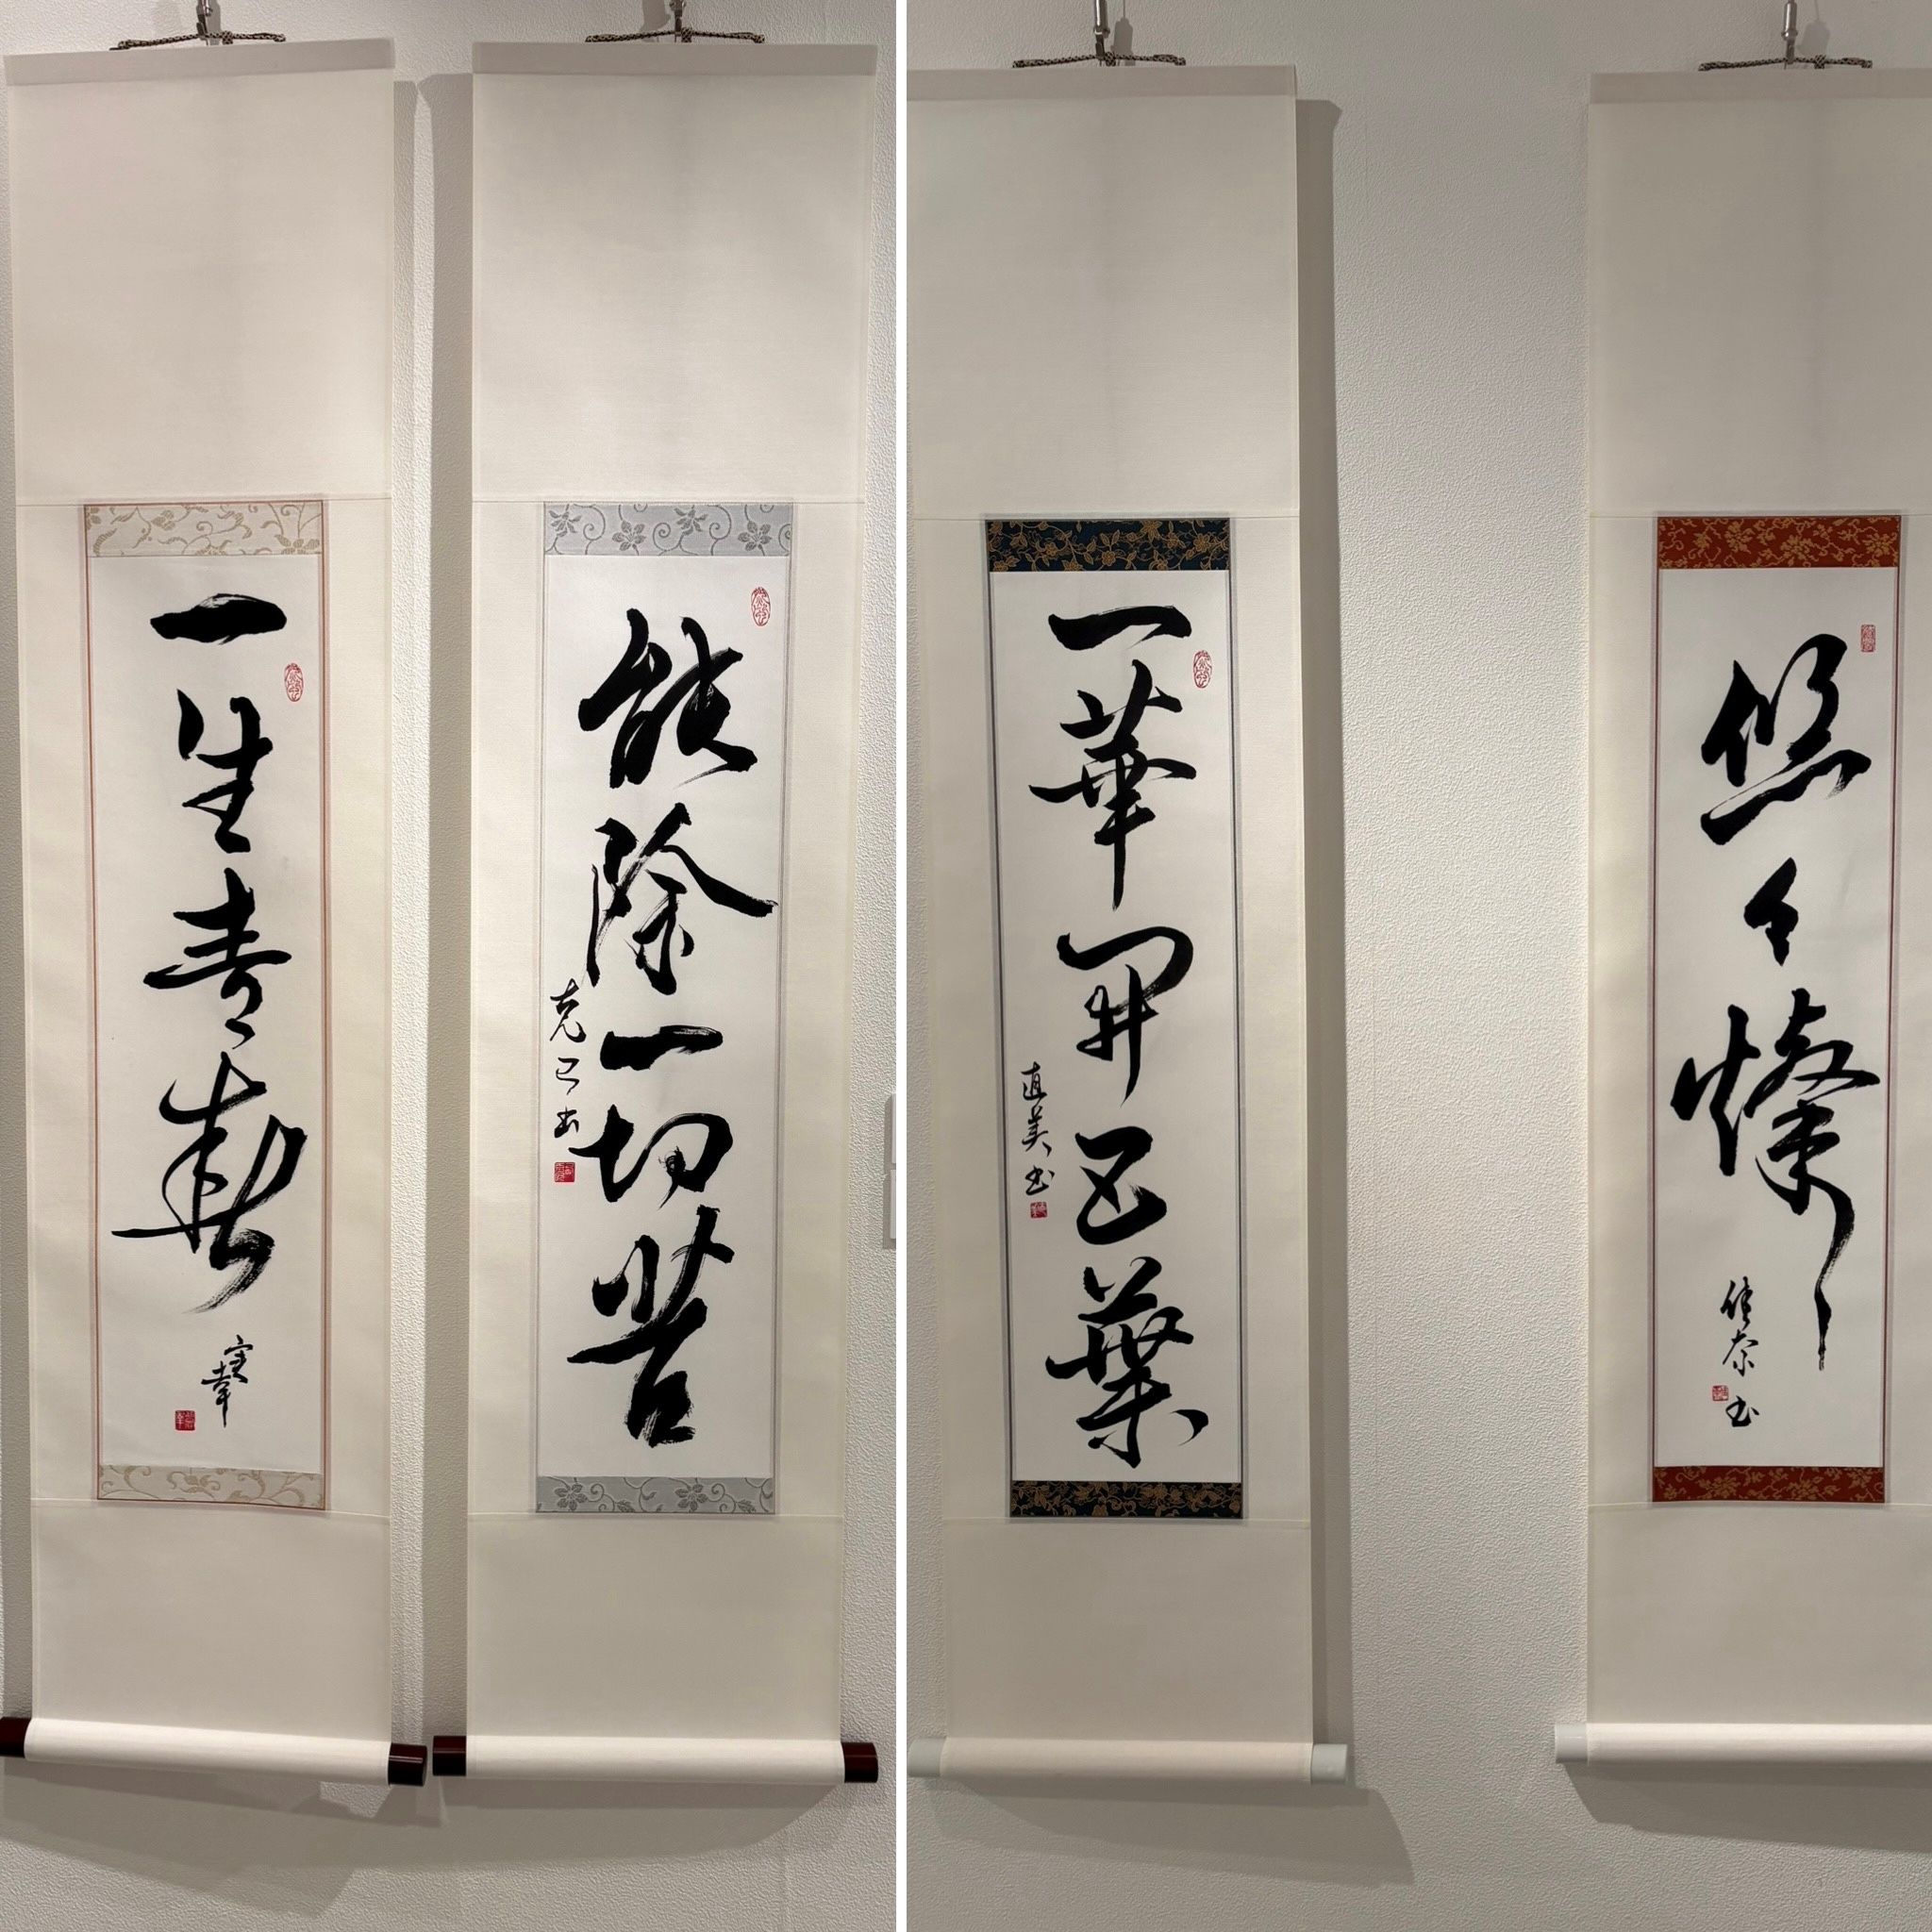 一生青春
能除一切苦
克己書
一華開五葉
直美書
悠々燦
佳奈書